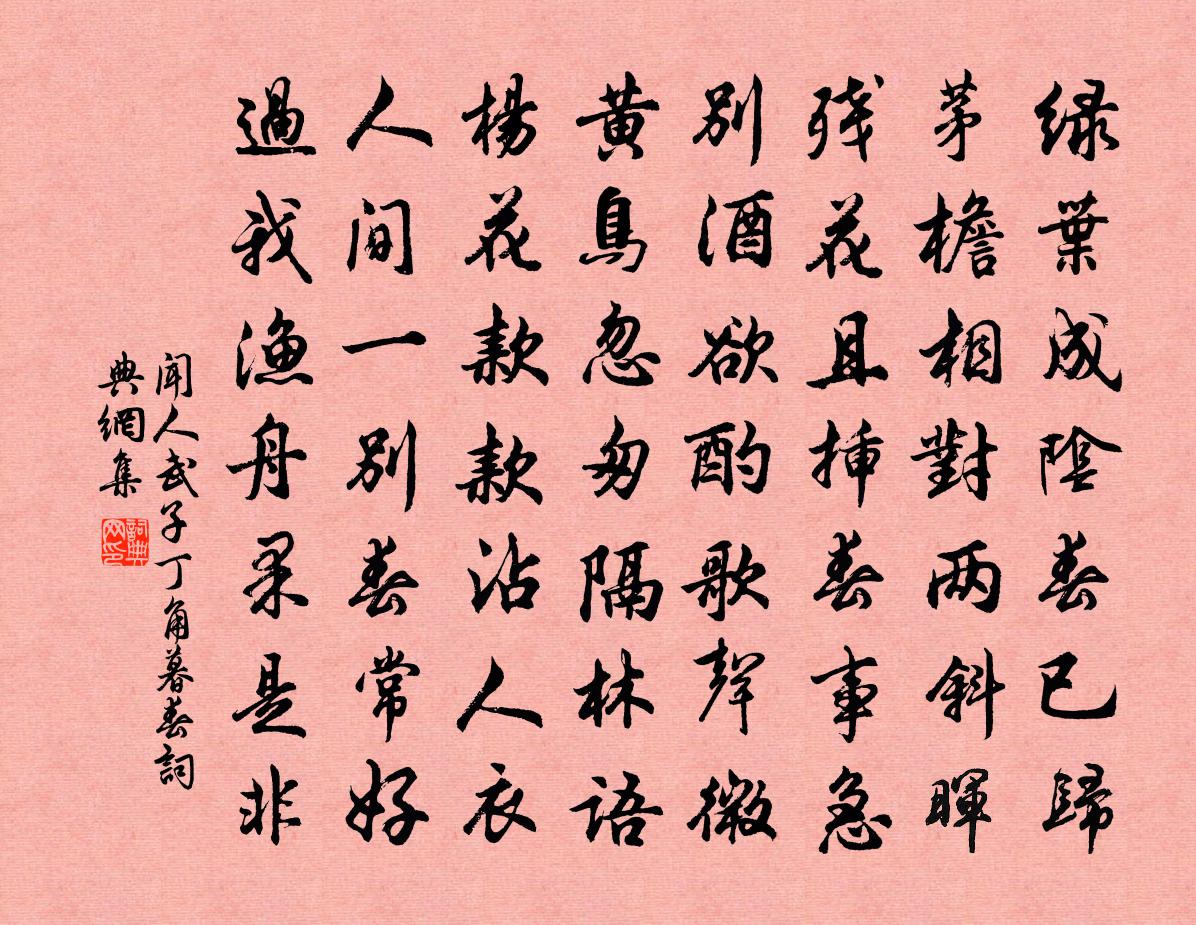 緑葉成陰春已歸
茅檐相對两斜暉
残花且挿春事急
別酒欲酌歌聲微
黄鳥忽匆隔林語
楊花款款沾人衣
人間一別春常好
過我漁舟果是非
聞人武子丁角暮春詞
典網集
詞典
网印